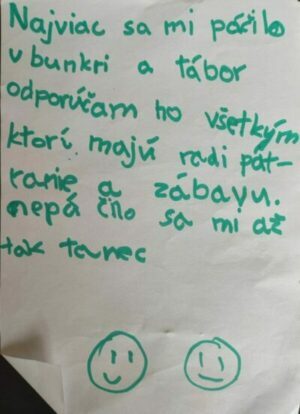 Najviac sa mi páčilo
v bunkri a tábor
odporúčam ho všetkým
ktorí majú radi pát-
ranie a zábavu.
nepáčilo sa mi až
tak tanec